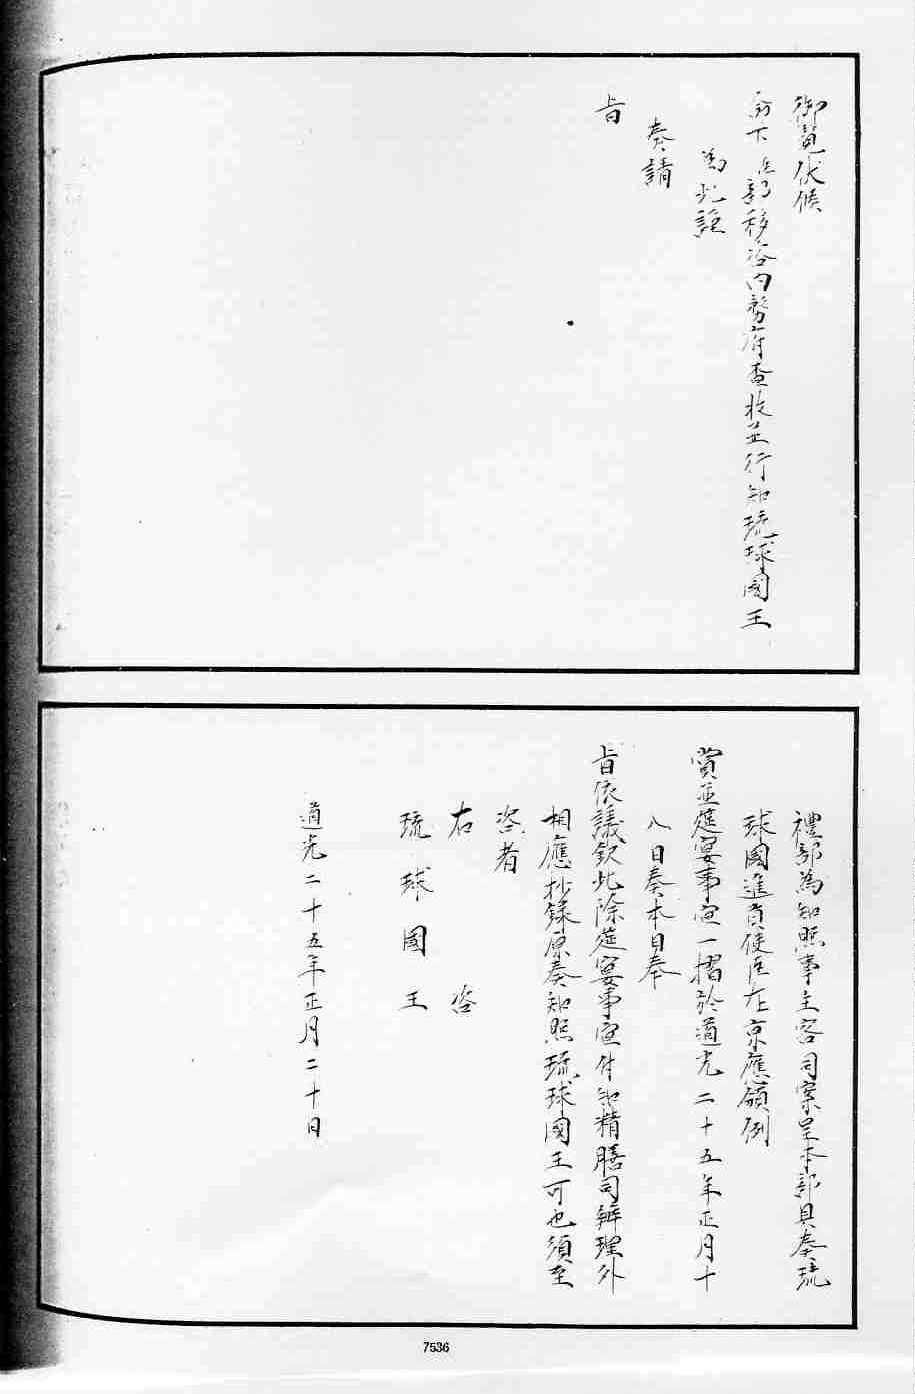 御覽伏候
命下臣部移咨内務府查收並行知琉球國王
為此謹
奏請
旨
禮部為知照事主客司案呈本部具奏琉
球國進貢使臣在京應領例
賞並筵宴事宜一摺於道光二十五年正月十
八日奏本日奉
旨依議欽此除筵宴事宜付知精膳司辦理外
相應抄錄原奏知照琉球國王可也須至
咨者
右咨
琉球國王
道光二十五年正月二十日
7536